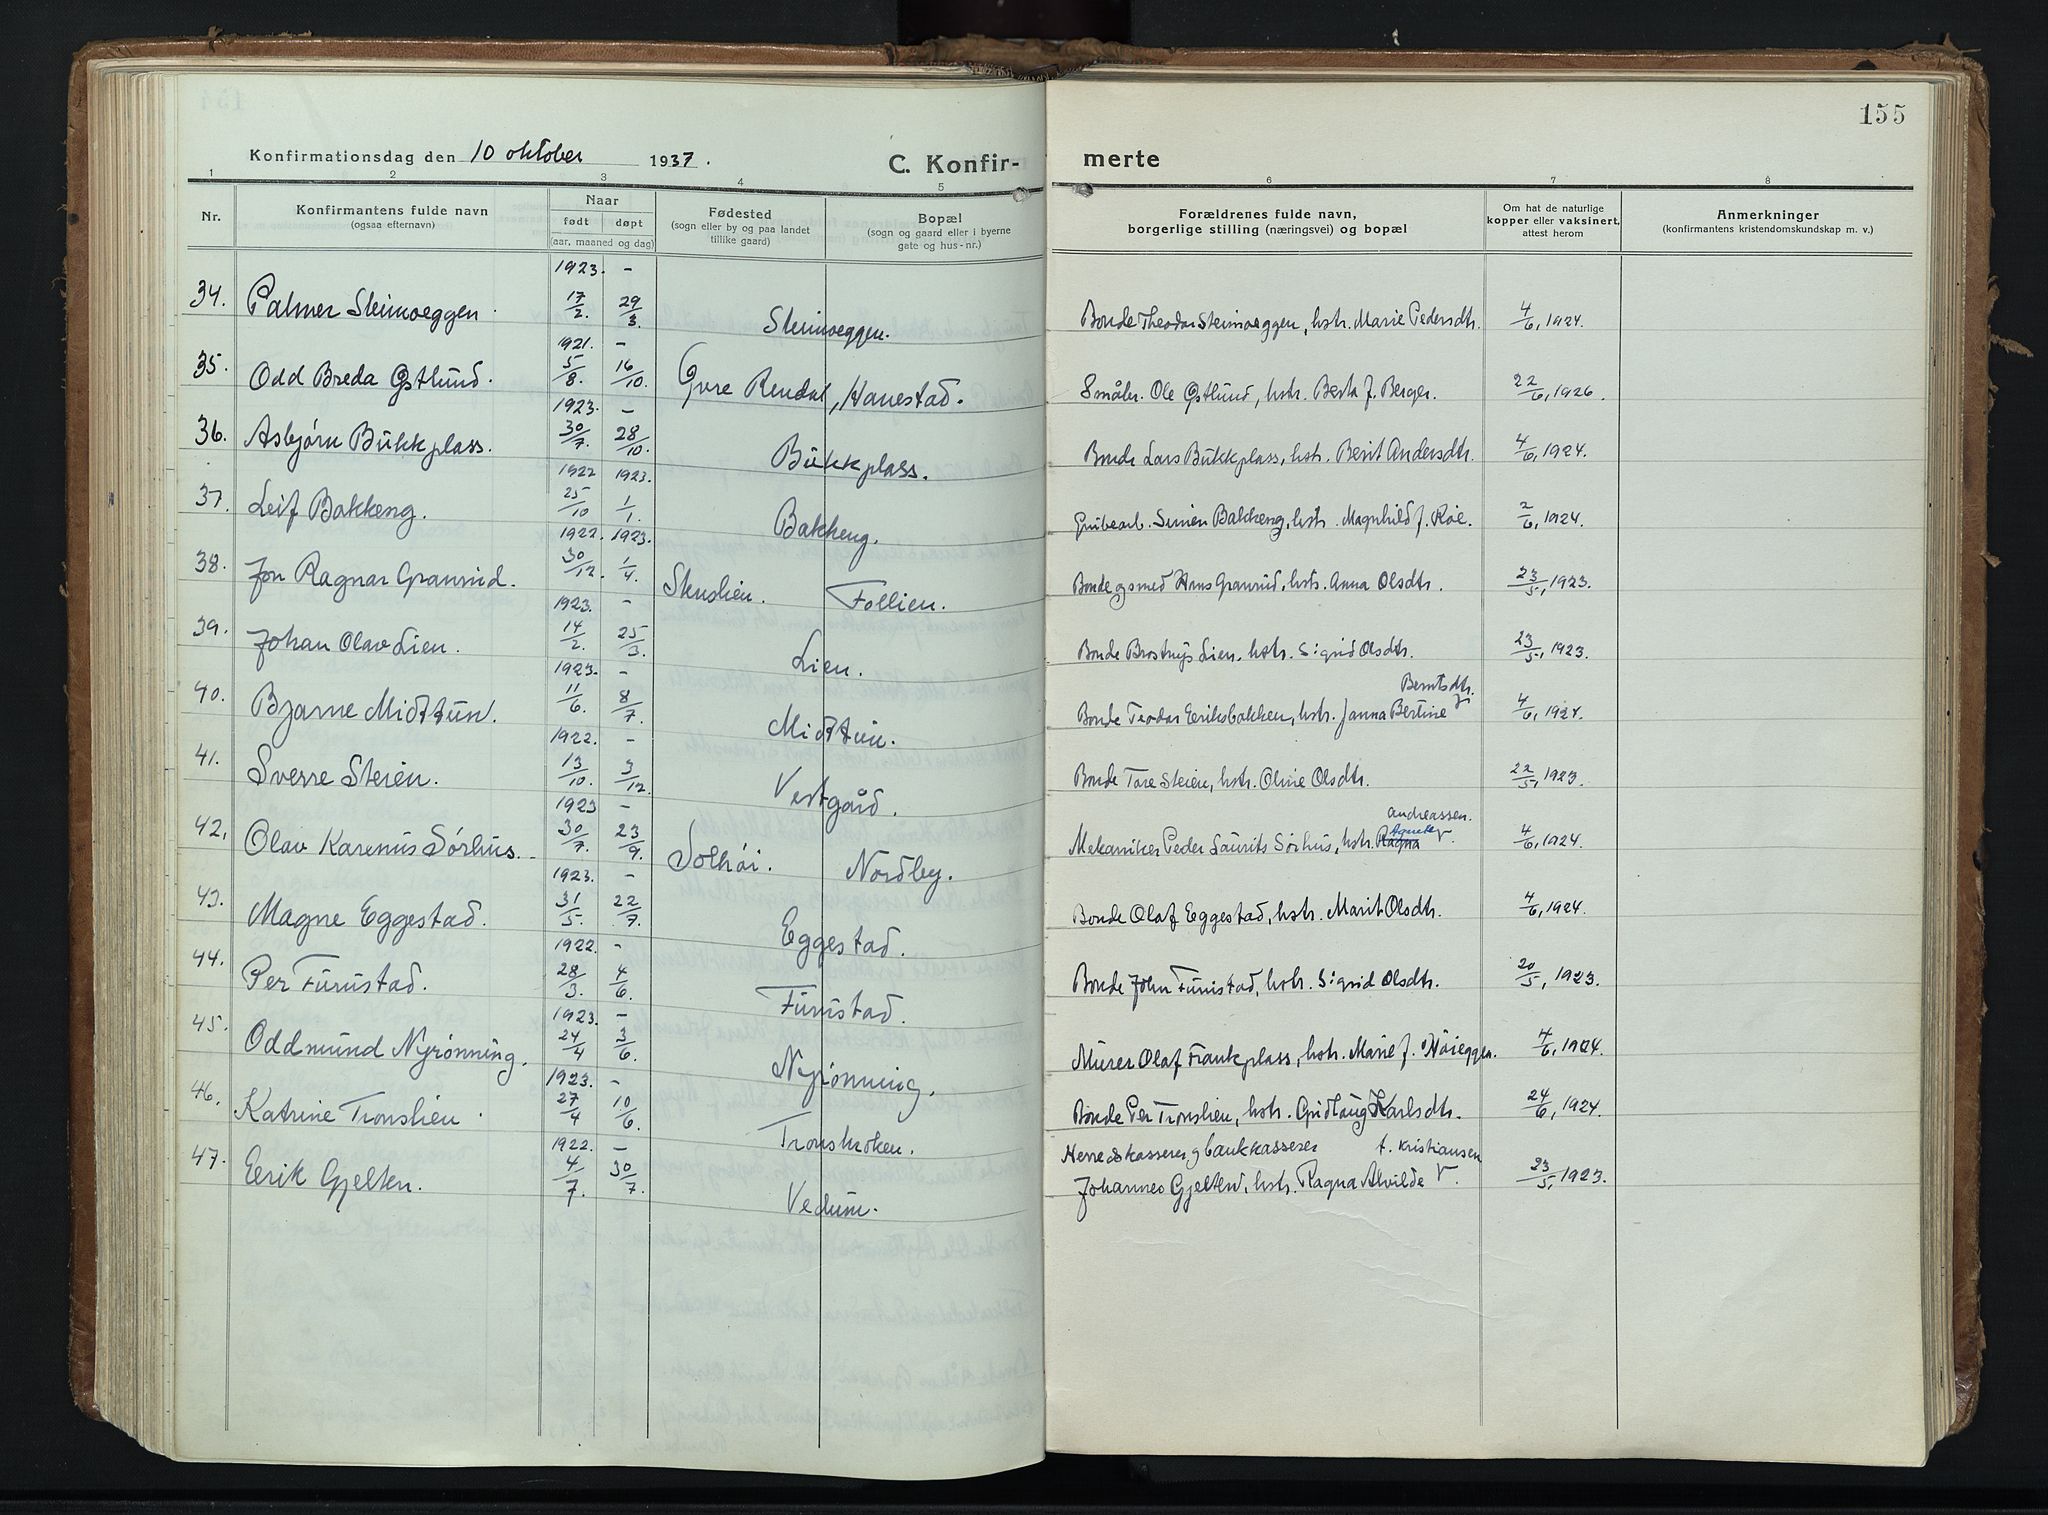 155
Konfirmationsdag den 10 oktober 1937.
C. Konfir-
merte
1 2 3 4 5 6 7 8
Nr.
Konfirmantens fulde navn
(ogsaa efternavn)
Naar
født døpt
(aar, maaned og dag)
Fødested
(sogn eller by og paa landet
tillike gaard)
Bopæl
(sogn og gaard eller i byerne
gate og hus-nr.)
Forældrenes fulde navn,
borgerlige stilling (næringsvei) og bopæl
Om hat de naturlige
kopper eller vaksinert,
attest herom
Anmerkninger
(konfirmantens kristendomskundskap m. v.)
1923. -
34. Palmer Steimoeggen. 17/2. 29/3. Steimoeggen. Bonde Theodor Steimoeggen, hstr. Marie Pedersdtr. 4/6, 1924.
1921. -
35. Odd Breda Østlund. 5/8. 16/10. Øvre Rendal, Hanestad. Småbr. Ole Østlund, hstr. Berta f. Berger. 22/6, 1926.
1923. -
36. Asbjørn Bukkplass. 30/7. 28/10. Bukkplass. Bonde Lars Bukkplass, hstr. Berit Andersdtr. 4/6, 1924.
1922 1923.
37. Leif Bakkeng. 25/10 1/1. Bakkeng. Grubearb. Bakkeng, hstr. Magnhild f. Røe. 2/6, 1924.
1922. 1923.
38. Jon Ragnar Granrud. 30/12. 1/4. Follien. Bonde og smed Hans Granrud, hstr. Anna Olsdtr. 23/5, 1923.
1923. -
39. Johan Olav Lien. 14/2. 25/3. Lien. Bonde Lien, hstr. Sigrid Olsdtr. 23/5, 1923.
1923. -
Berntsdtr.
40. Bjarne Midttun. 11/6. 8/7. Midttun. Bonde Teodor Eriksbakken, hstr. Janna Bertine 4/6, 1924.
1922. -
41. Sverre Steien. 13/10. 3/12. Vestgård. Bonde Tore Steien, hstr. Oline Olsdtr. 22/5, 1923.
1923 -
Andreassen.
Agnete
42. Olav Karenus Sørhus. 30/7. 23/9. Solhøi. Nordby. Mekaniker Peder Laurits Sørhus, hstr. Ragna 4/6, 1924.
1923. -
43. Magne Eggestad. 31/5. 22/7. Eggestad. Bonde Olaf Eggestad, hstr. Marit Olsdtr. 4/6, 1924.
1922. -
44. Per Furustad. 28/3. 4/6. Furustad. Bonde John Furustad, hstr. Sigrid Olsdtr. 20/5, 1923.
1923. -
45. Oddmund Nyrønning. 24/4 3/6. Nyrønning. Murer Olaf Frankplass, hstr. Marie f. Høieggen. 4/6, 1924.
1923. -
46. Katrine Tronslien. 27/4 10/6. Tronskroken. Bonde Per Tronslien, hstr. Gudlaug Karlsdtr. 24/6, 1924.
1922. -
Herredskasserer og bankkasserer f. Kristiansen
47. Eerik Gjelten. 4/7. 30/7. Vedum. Johannes Gjelten, hstr. Ragna Alvilde 23/5, 1923.